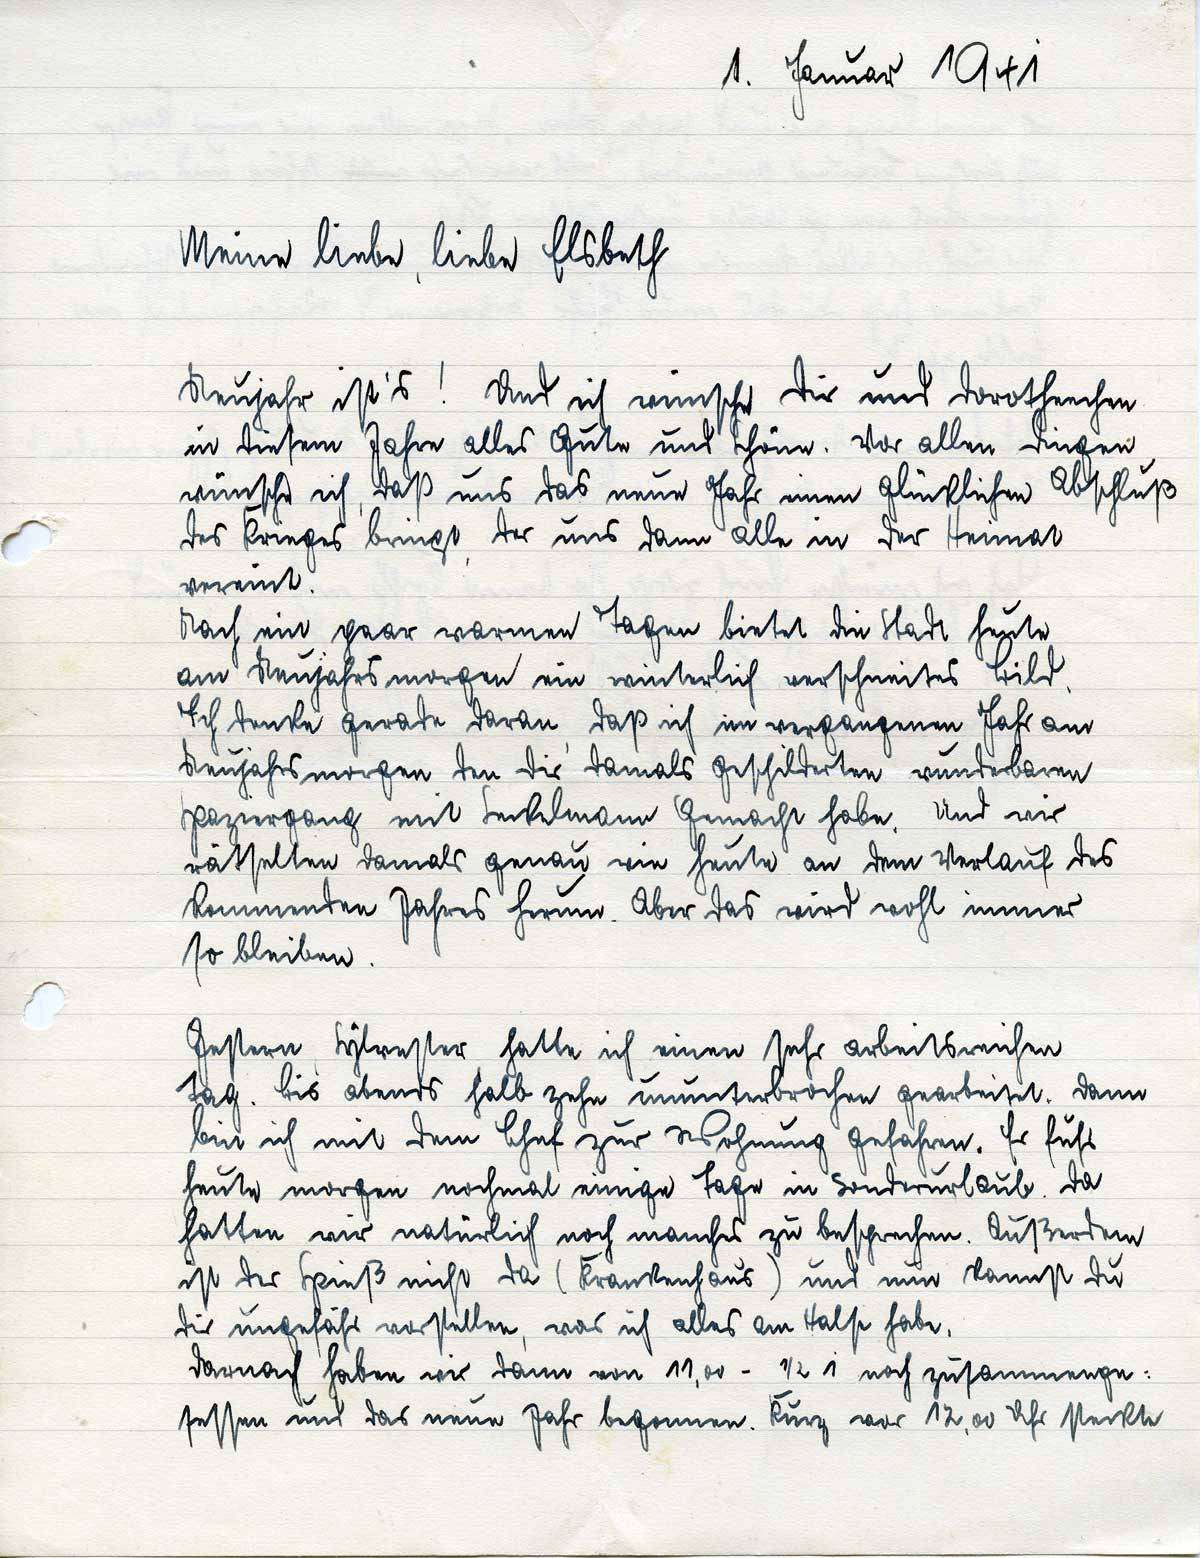 1. Januar 1941
Meine liebe, liebe Elsbeth
Neujahr ist's! Und ich wünsche Dir und Dorotheechen
in diesem Jahre alles Gute und Schöne. Vor allen Dingen
wünsche ich, daß uns das neue Jahr einen glücklichen Abschluß
des Krieges bringt, der uns dann alle in der Heimat
vereint.
Nach ein paar warmen Tagen bietet die Stadt heute
am Neujahrsmorgen ein winterlich verschneites Bild.
Ich denke gerade daran, daß ich im vergangenen Jahr am
Neujahrsmorgen den Dir damals geschilderten wunderbaren
Spaziergang mit Seckelmann gemacht habe. Und wir
rätselten damals genau wie heute an dem Verlauf des
kommenden Jahres herum. Aber das wird wohl immer
so bleiben.
Gestern, Sylvester hatte ich einen sehr arbeitsreichen
Tag. Bis abends halb zehn ununterbrochen gearbeitet. Dann
bin ich mit dem Chef zur Wohnung gefahren. Er fuhr
heute morgen nochmal einige Tage in Sonderurlaub. Da
hatten wir natürlich noch manches zu besprechen. Außerdem
ist der Spieß nicht da (Krankenhaus) und nun kannst Du
Dir ungefähr vorstellen, was ich alles am Halse habe.
Darnach haben wir dann von 11,00 - 1/2 1 noch zusammenge:
sessen und das neue Jahr begonnen. Kurz vor 12,00 Uhr steckte